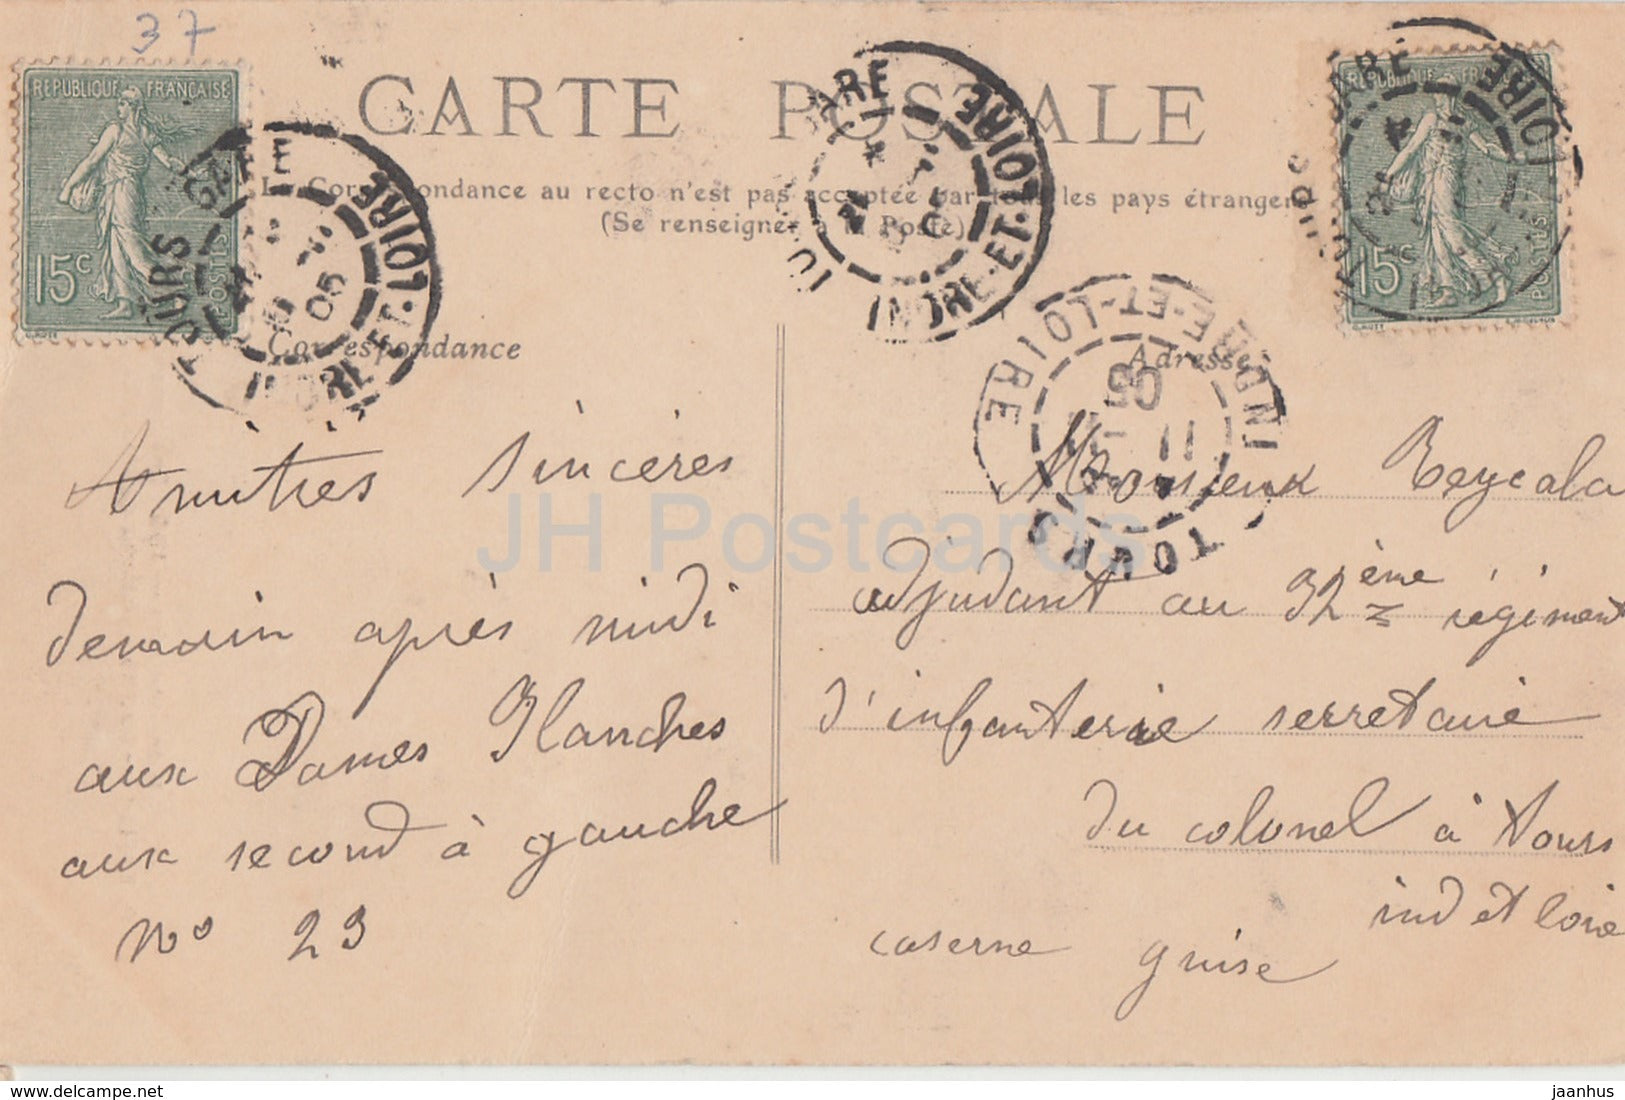 37
CARTE POSTALE
La Correspondance au recto n'est pas acceptée par tous les pays étrangers
(Se renseigner à la Poste)
REPUBLIQUE FRANÇAISE
15c
POSTES
REPUBLIQUE
15c
POSTES
TOURS GARE
INDRE-ET-LOIRE
05
GARE
INDRE-ET-LOIRE
05
LOIRE
TOURS
INDRE-ET-LOIRE
11
05
Correspondance
Adresse
Amitiés sincères
demain après midi
aux Dames Blanches
aux second à gauche
No 23
Monsieur Reycala
adjudant au 32ème régiment
d'infanterie serretaire
du colonel à Tours
ind et loire
caserne guise
JH Postcards
jaanhus